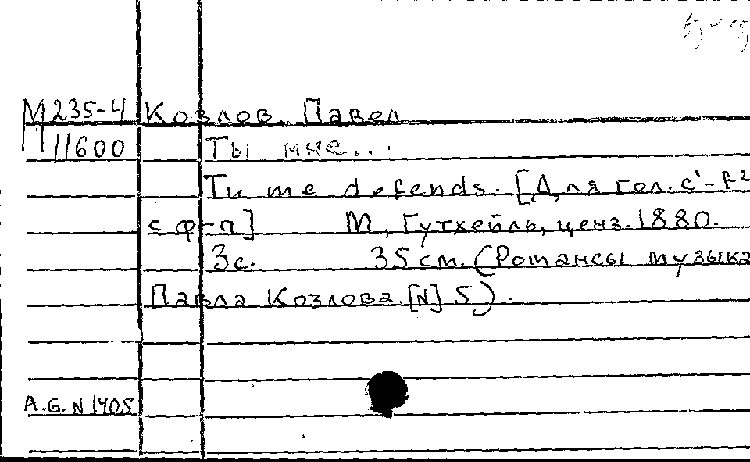 М235-4 Козлов, Павел
П11600 Ты мне...
Tu me defends. [Для гол. c¹-f²
с ф-п] М, Гутхейль, ценз. 1880.
3с. 35см. (Романсы музыка
Павла Козлова. [N] 5).
A.G. N 1405